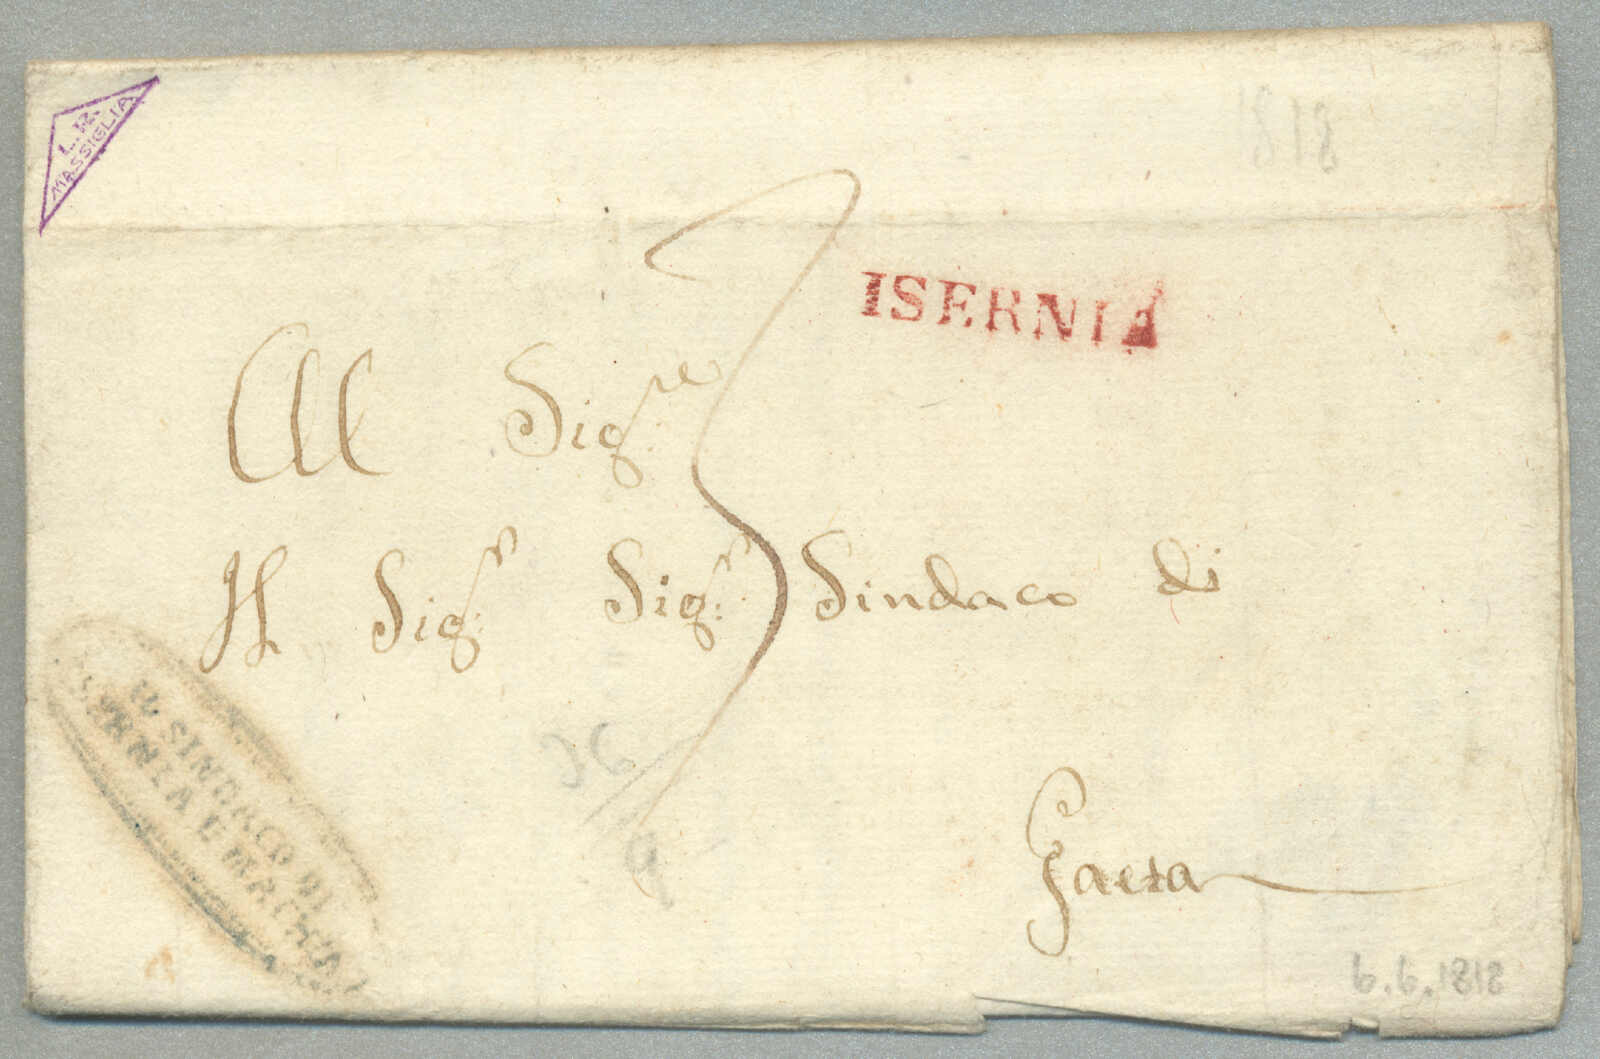 L.R.
MASSIGLIA
1818
3
ISERNIA
Al Sig.re
Il Sig.r Sig.r Sindaco di
Gaeta
SINDACO DI
36
9
6.6.1818